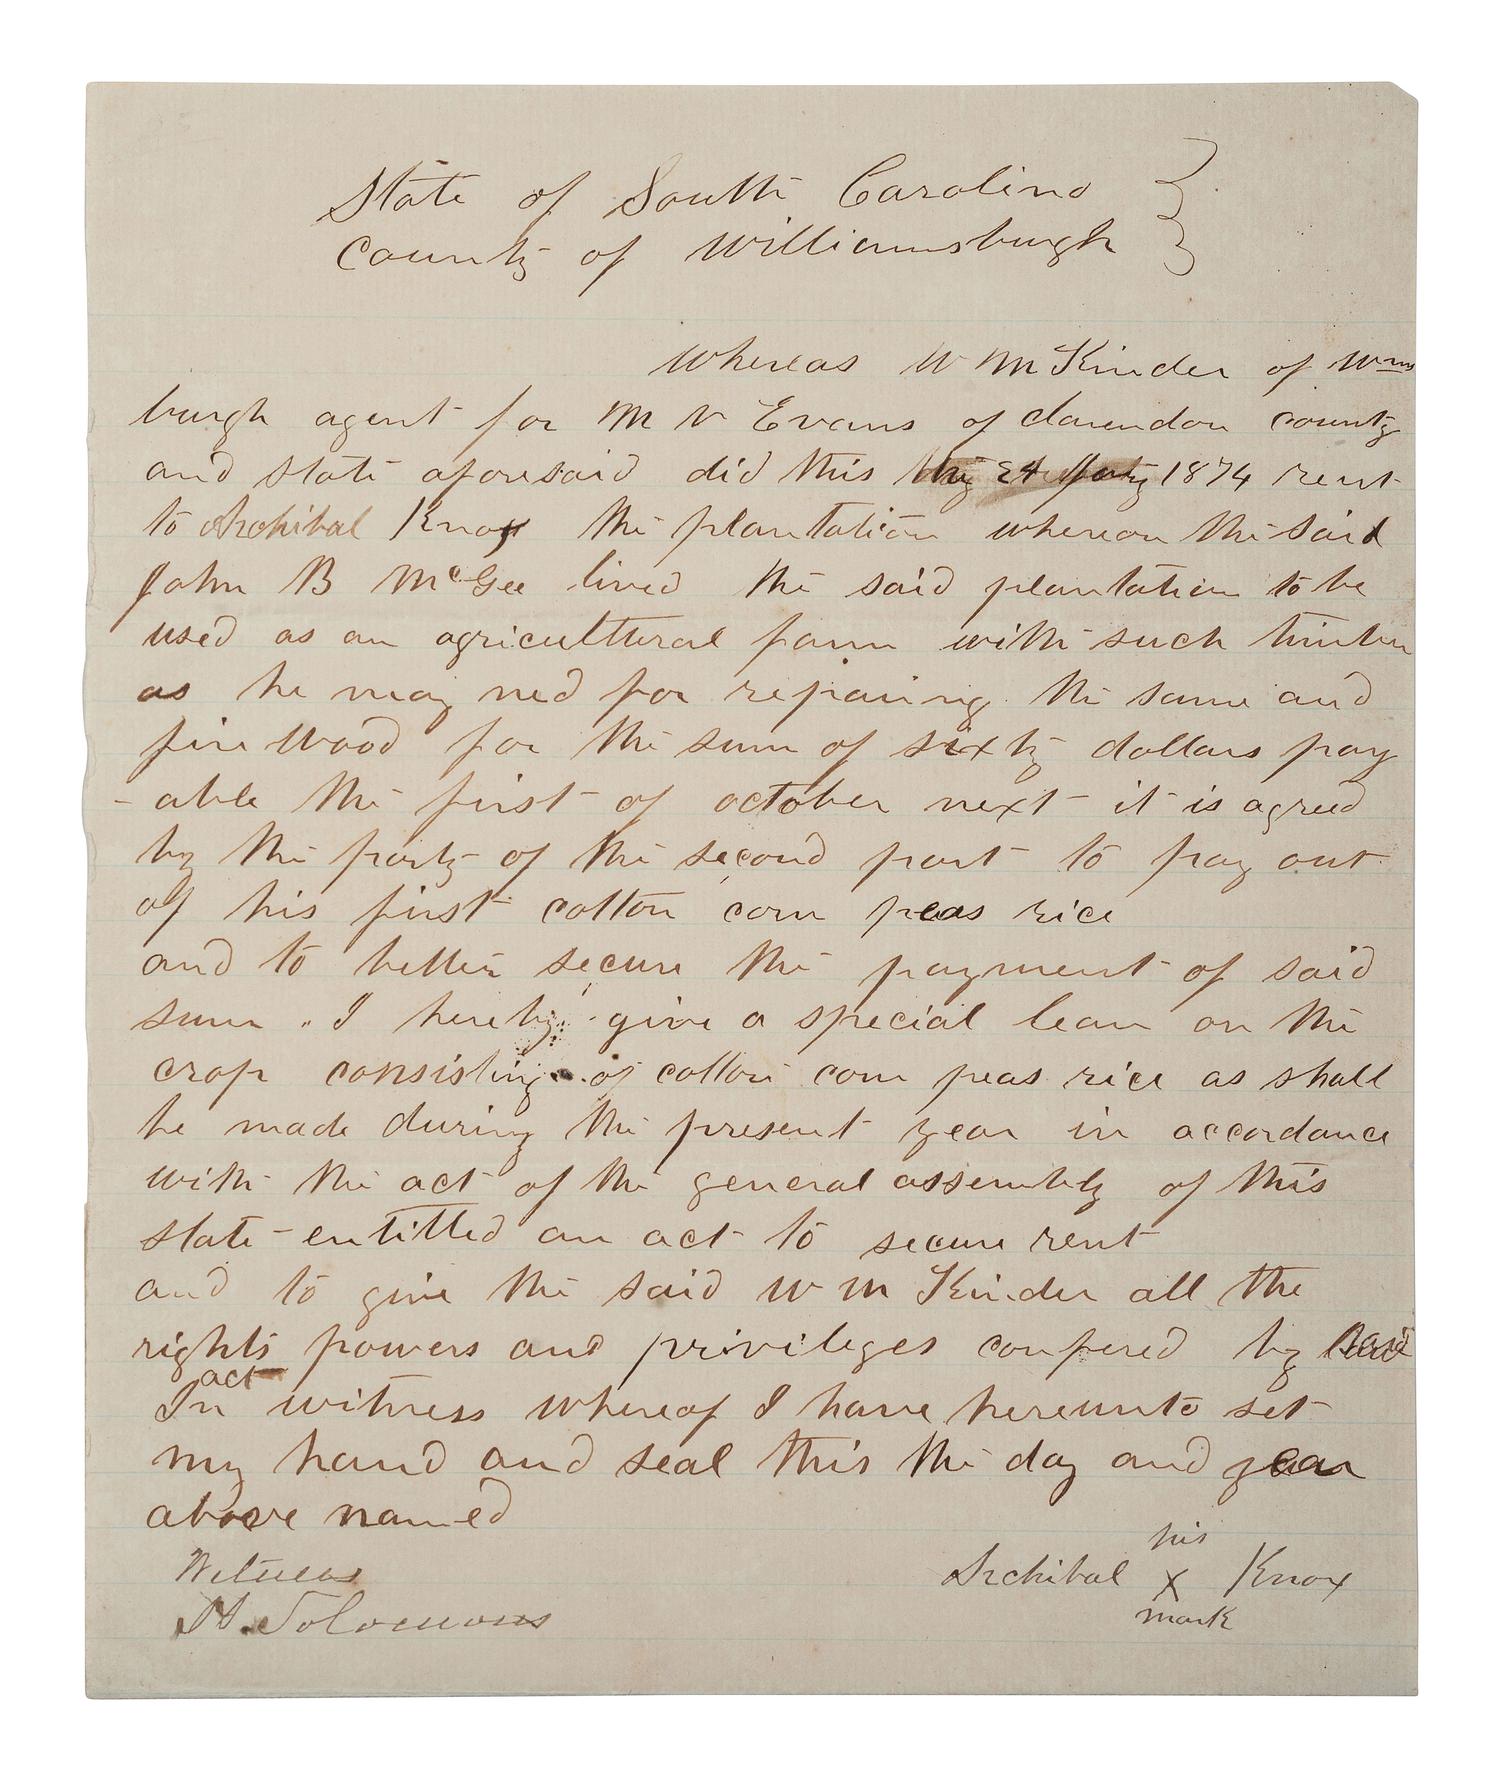 State of South Carolina }
County of Williamsburgh }
Whereas W M Kinder of Wms
burgh agent for M V Evans of Clarendon county
and state aforesaid did this 24 1874 rent
to Archibal Knox the plantation whereon the said
John B McGee lived the said plantation to be
used as an agricultteral farm with such timber
as he may ned for repairing the same and
fire wood for the sum of sixty dollars pay
-able the first of october next it is agreed
by the party of the second part to pay out
of his first cotton corn peas rice
and to better secure the payment of said
sum . I hereby give a special lean on the
crop consisting of cotton corn peas rice as shall
be made during the present year in accordance
with the act of the general assembly of this
state entittled an act to secure rent
and to give the said W M Kinder all the
rights powers and privileges confered by said
act
In witness whereof I have hereunto set
my hand and seal this the day and year
above named
his
Witness
Archibal X Knox
mark
H. Solomons